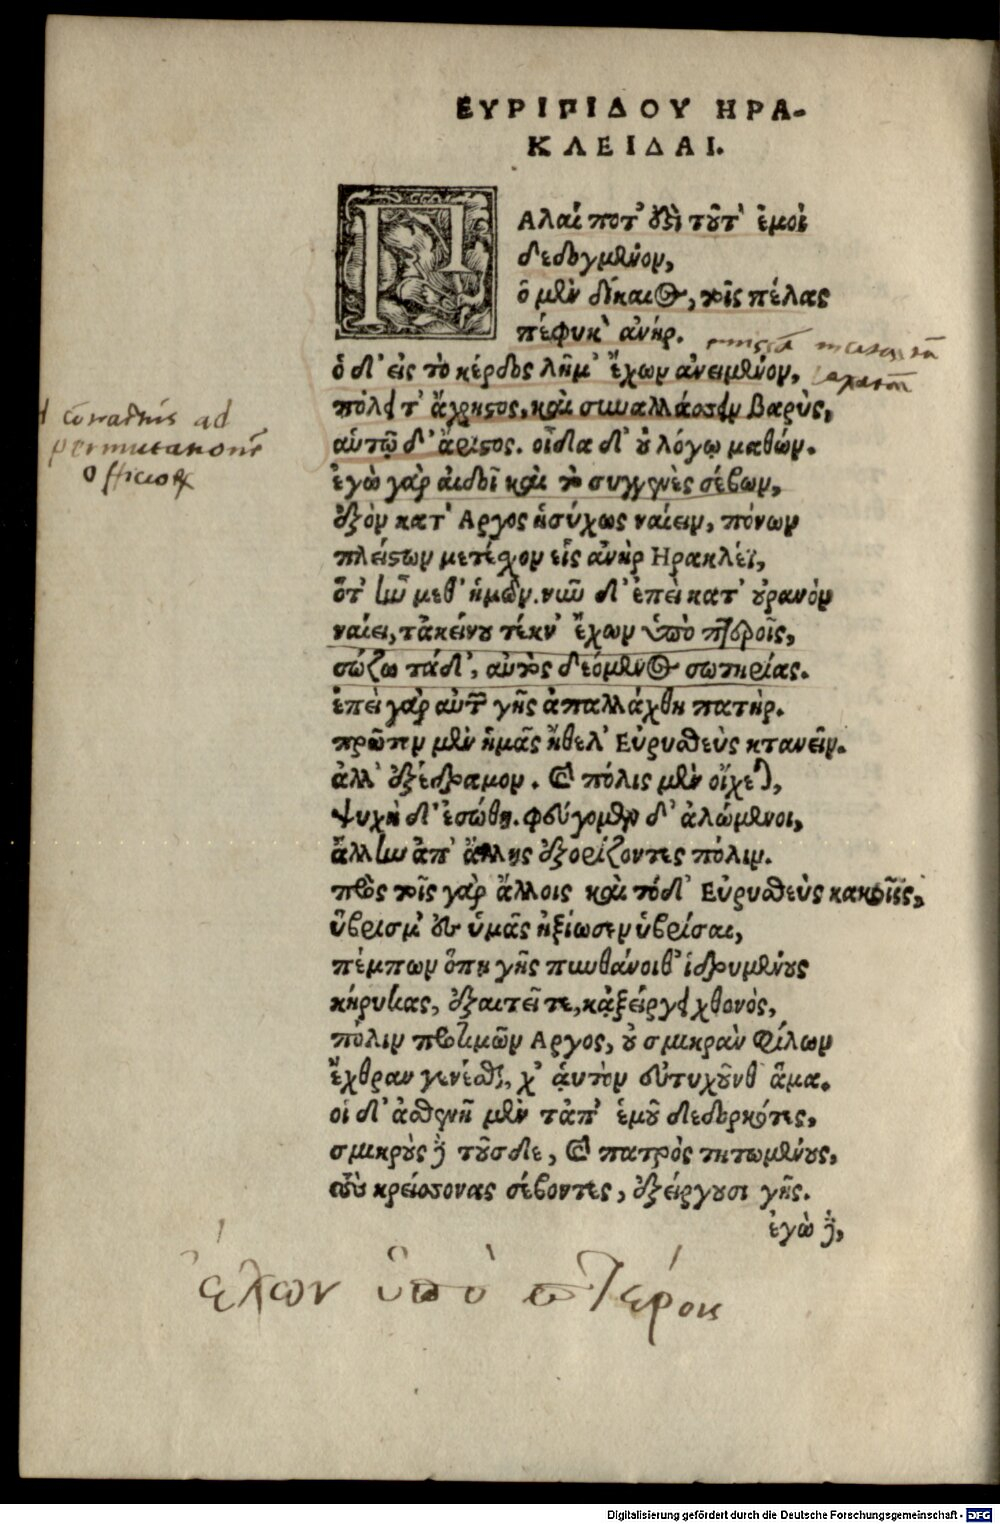 ΕΥΡΙΠΙΔΟΥ ΗΡΑ-
ΚΛΕΙΔΑΙ.
Πάλαι ποτ' ὀξὶ τοῦτ' ἐμοὶ
δεδογμένον,
ὁ μὲν δίκαιος, τοῖς πέλας
πέφυκ' ἀνήρ.
ὁ δ' εἰς τὸ κέρδος λῆμ' ἔχων ἀνειμένον,
πόλει τ' ἄχρηστος, καὶ συναλλάσσειν βαρὺς,
αὑτῷ δ' ἄριστος. οἶδα δ' οὐ λόγῳ μαθών.
ἐγὼ γὰρ αἰδοῖ καὶ τὸ συγγενὲς σέβων,
ἐξὸν κατ' Αργος ἡσύχως ναίειν, πόνων
πλείστων μετέσχον εἷς ἀνὴρ Ηρακλέϊ,
ὅτ' ἦν μεθ' ἡμῶν. νῦν δ' ἐπεὶ κατ' οὐρανὸν
ναίει, τἀκείνου τέκν' ἔχων ὑπὸ πτεροῖς,
σώζω τάδ', αὐτὸς δεόμενος σωτηρίας.
ἐπεὶ γὰρ αὐτῶν γῆς ἀπαλλάχθη πατὴρ.
πρῶτον μὲν ἡμᾶς ἤθελ' Εὐρυσθεὺς κτανεῖν.
ἀλλ' ἐξέδραμον. καὶ πόλις μὲν οἴχεται,
ψυχὴ δ' ἐσώθη. φεύγομεν δ' ἀλώμενοι,
ἄλλην ἀπ' ἄλλης ἐξορίζοντες πόλιν.
πρὸς τοῖς γὰρ ἄλλοις καὶ τόδ' Εὐρυσθεὺς κακοῖς,
ὕβρισμ' εἰς ὑμᾶς ἠξίωσεν ὑβρίσαι,
πέμπων ὅπη γῆς πυνθάνοιθ' ἱδρυμένους
κήρυκας, ἐξαιτεῖ τε, κᾀξείργει χθονὸς,
πόλιν προτιμῶν Αργος, οὐ σμικρὰν φίλων
ἔχθραν γενέσθαι, χ' αὑτὸν εὐτυχοῦνθ' ἅμα.
οἱ δ' ἀσθενῆ μὲν τἀπ' ἐμοῦ δεδορκότες,
σμικροὺς δὲ τοῦσδε, καὶ πατρὸς τητωμένους,
τοὺς κρείσσονας σέβοντες, ἐξείργουσι γῆς.
ἐγὼ δὲ,
ad
permutationem
officiorum
ἔχων ὑπὸ πτέροις
Digitalisierung gefördert durch die Deutsche Forschungsgemeinschaft - DFG